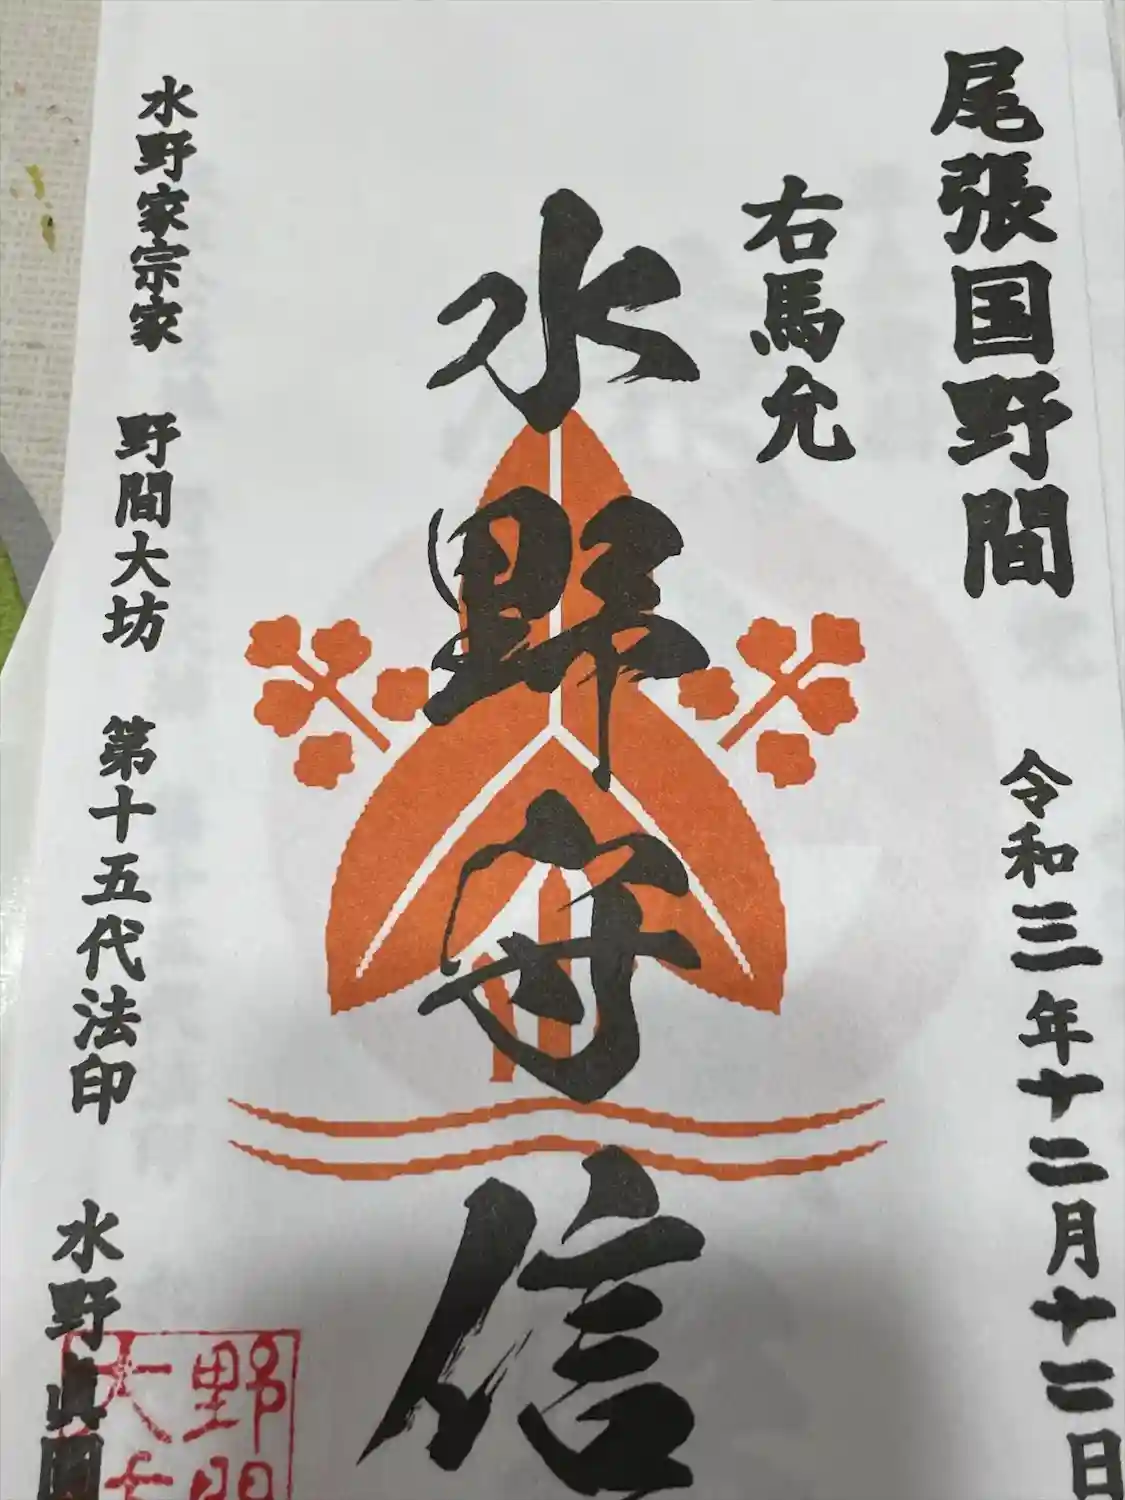 尾張国野間
令和三年十二月十二日
右馬允
水野守信
水野家宗家 野間大坊 第十五代法印 水野眞圓
野間
大坊